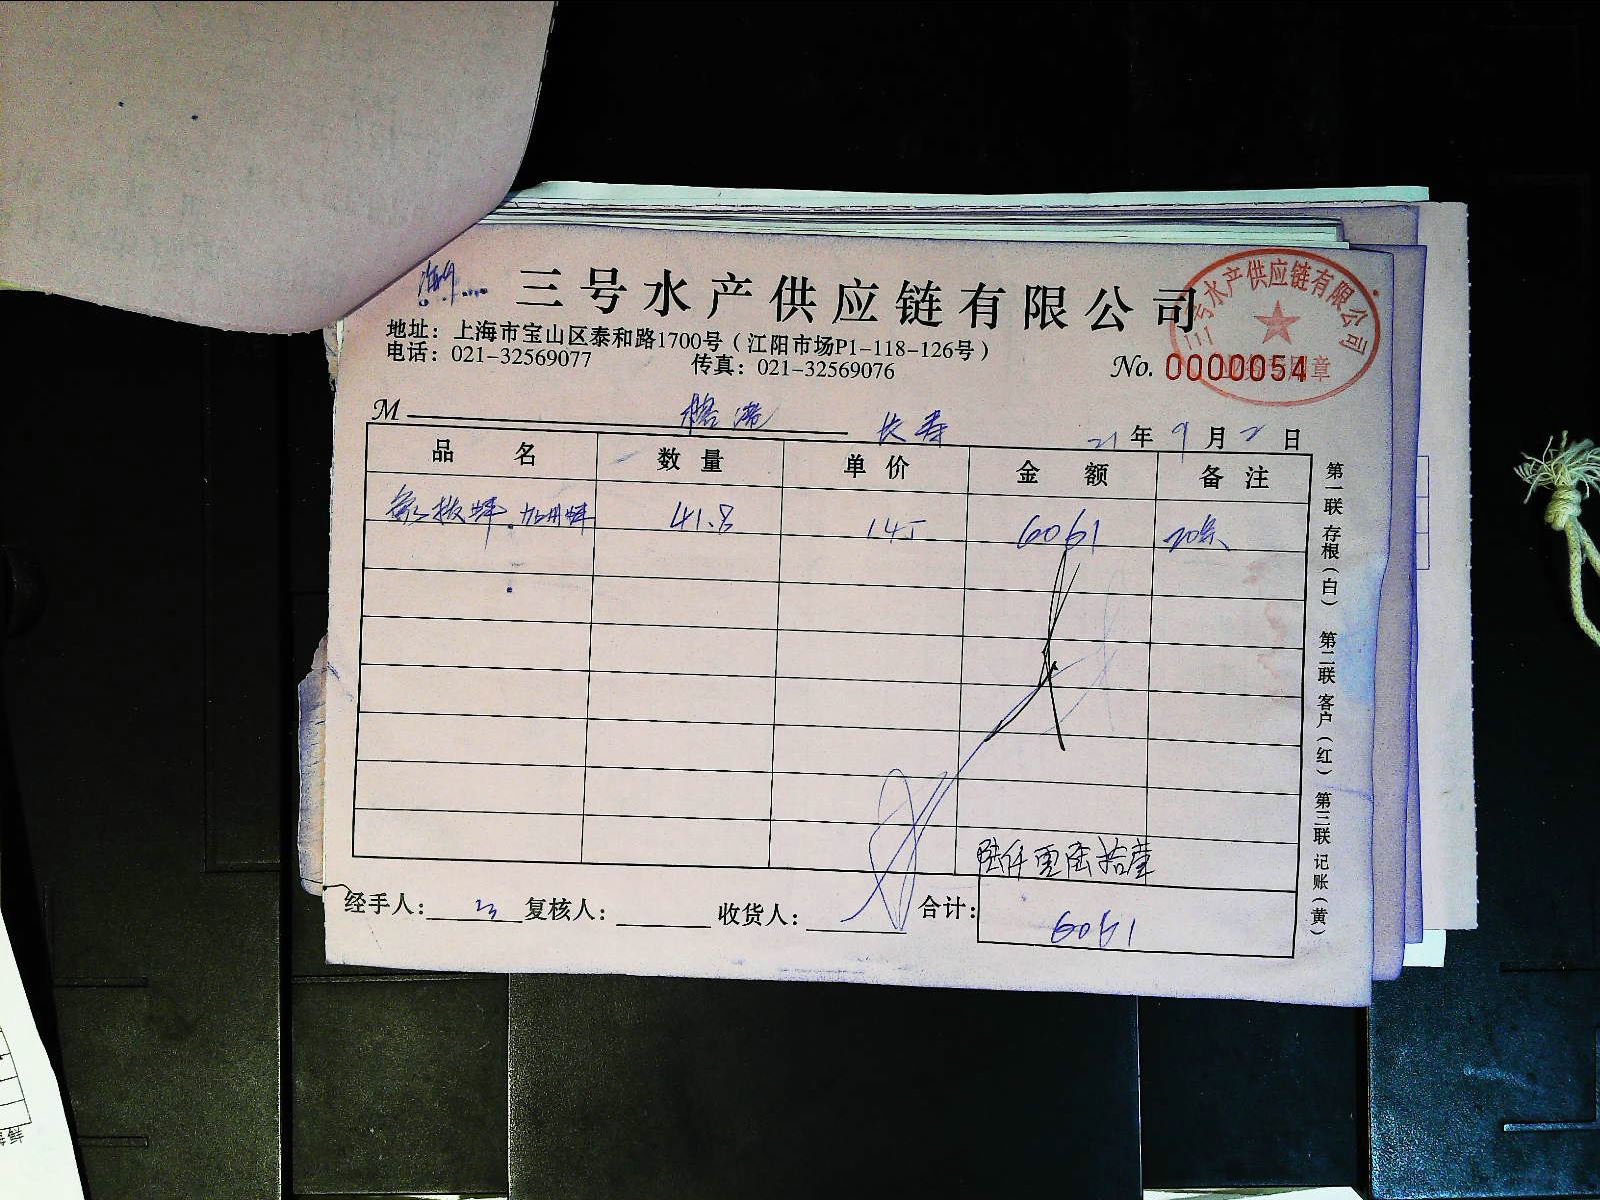 三号水产供应链有限公司
地址：上海市宝山区泰和路1700号（江阳市场P1-118-126号）
电话：021-32569077 传真：021-32569076
No. 0000054
号水产供应链有限公司
章
M 长寿 21年9月2日
品名 数量 单价 金额 备注
41.8 145 6061 20条
陆仟零陆拾壹
经手人： 复核人： 收货人： 合计： 6061
第一联 存根（白） 第二联 客户（红） 第三联 记账（黄）